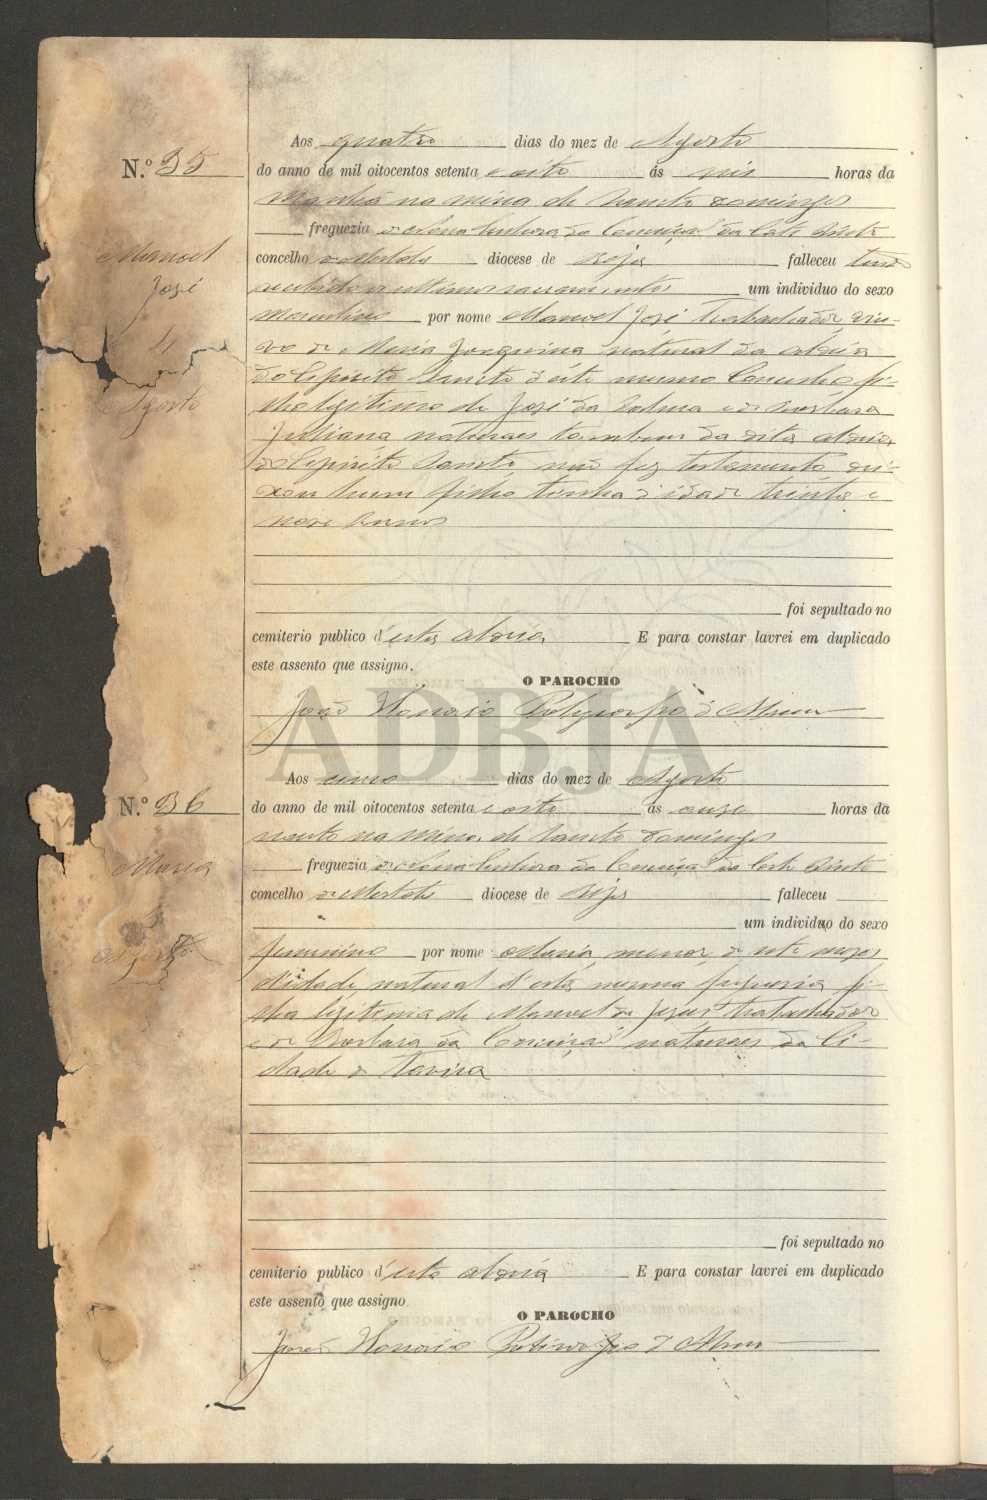 N.º 35
Manoel
José
4
Agosto
Aos quatro dias do mez de Agosto
do anno de mil oitocentos setenta e oito ás seis horas da
manhã na mina de Sancto Domingos
freguezia de Nossa Senhora da Conceiçaõ da Corte do Pinto
concelho de Mertola diocese de Beja falleceu tendo
recebido os ultimos sacramentos um individuo do sexo
masculino por nome Manoel José trabalhador viu-
vo de Maria Joaquina natural da aldeia
do Espirito Sancto d'este mesmo Concelho fi-
lho legitimo de José da Palma e de Barbara
Juliana naturaes tambem da dita aldeia
do Espirito Sancto, naõ fez testamento, dei-
xou hum filho tinha d'idade trinta e
nove annos
foi sepultado no
cemiterio publico d'esta aldeia E para constar lavrei em duplicado
este assento que assigno.
O PAROCHO
João Honorio Polycarpo d'
ADBJA
N.º 36
Maria
5
Agosto
Aos cinco dias do mez de Agosto
do anno de mil oitocentos setenta e oito ás onze horas da
noute na mina de Sancto Domingos
freguezia de Nossa Senhora da Conceiçaõ da Corte do Pinto
concelho de Mertola diocese de Beja falleceu
um individuo do sexo
femenino por nome Maria, menor, de sete mezes
d'idade, natural d'esta mesma freguesia fi-
lha legitima de Manoel de Jesus trabalhador
e de Barbara da Conceiçaõ naturaes da Ci-
dade de Tavira
foi sepultado no
cemiterio publico d'esta aldeia E para constar lavrei em duplicado
este assento que assigno.
O PAROCHO
João Honorio Policarpo d'